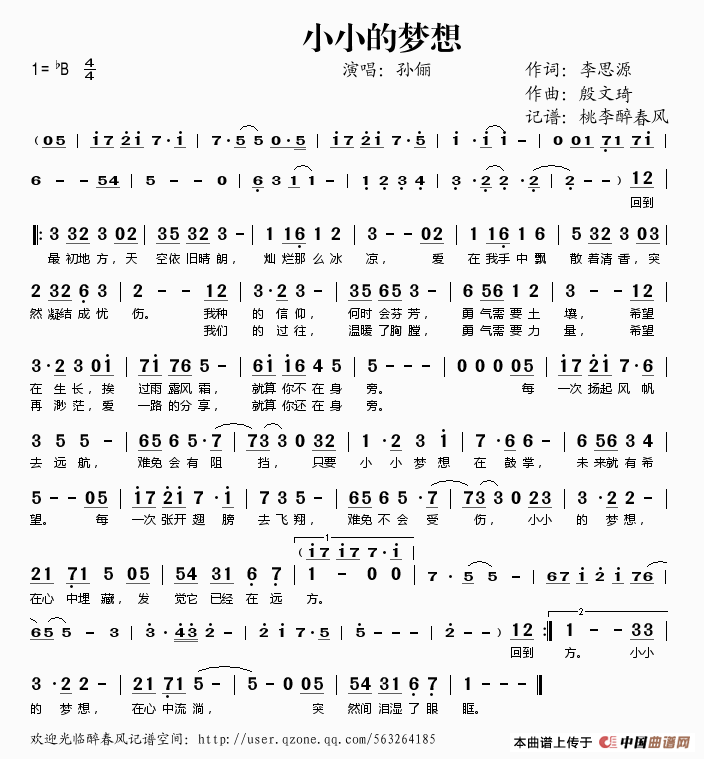 小小的梦想
1= ♭B 4/4 演唱：孙俪 作词：李思源
作曲：殷文琦
记谱：桃李醉春风
（05 | i7 2i 7·i | 7·5 5 0·5 | i7 2i 7·5 | i·i i - | 0 01 71 71 |
6 - - 54 | 5 - - 0 | 6 3 1 1 - | 1 2 3 4 | 3·2 2·2 | 2 - - ） 12 |
回到
‖: 3 32 3 02 | 35 32 3 - | 1 16 1 2 | 3 - - 02 | 1 16 · 16 | 5 32 3 03 |
最初地方，天 空依旧晴朗， 灿烂那么冰 凉， 爱 在我手中飘 散着清香，突
2 32 6 3 | 2 - - 12 | 3·2 3 - | 35 65 3 - | 6 56 1 2 | 3 - - 12 |
然凝结成忧 伤。 我种 的信仰， 何时会芬芳， 勇气需要土 壤， 希望
我们 的过往， 温暖了胸膛， 勇气需要力 量， 希望
3·2 3 0i | 7i 76 5 - | 6i i6 4 5 | 5 - - - | 0 0 0 05 | i7 2i 7·6 |
在生长，挨 过雨露风霜， 就算你不在身 旁。 每 一次扬起风帆
再渺茫，爱 一路的分享， 就算你还在身 旁。
3 5 5 - | 65 65 ·7 | 73 3 0 32 | 1 ·2 3 i | 7 ·6 6 - | 6 56 3 4 |
去远航， 难免会有阻 挡， 只要 小小梦想 在鼓掌， 未来就有希
5 - - 05 | i7 2i 7 ·i | 7 35 5 - | 65 65 ·7 | 73 3 0 23 | 3 ·2 2 - |
望。 每 一次张开翅膀 去飞翔， 难免不会受 伤， 小小 的梦想，
1
（i7 i7 7·i |
21 71 5 05 | 54 31 6 7 | 1 - 0 0 | 7·5 5 5 | 67 i 2 i | 76
在心中埋藏，发 觉它已经在远 方。
65 5 - 3 | 3·43 2 - | 2 i 7·5 | 5 3 4 3 | 2 - - ） 12 :‖ 2 1 - - 33 |
回到 方。 小小
3 ·2 2 - | 21 71 5 - | 5 - 0 05 | 54 31 6 7 | 1 - - - ‖
的梦想， 在心中流淌， 突 然间泪湿了眼 眶。
欢迎光临醉春风记谱空间：http://user.qzone.qq.com/563264185
本曲谱上传于 中国曲谱网